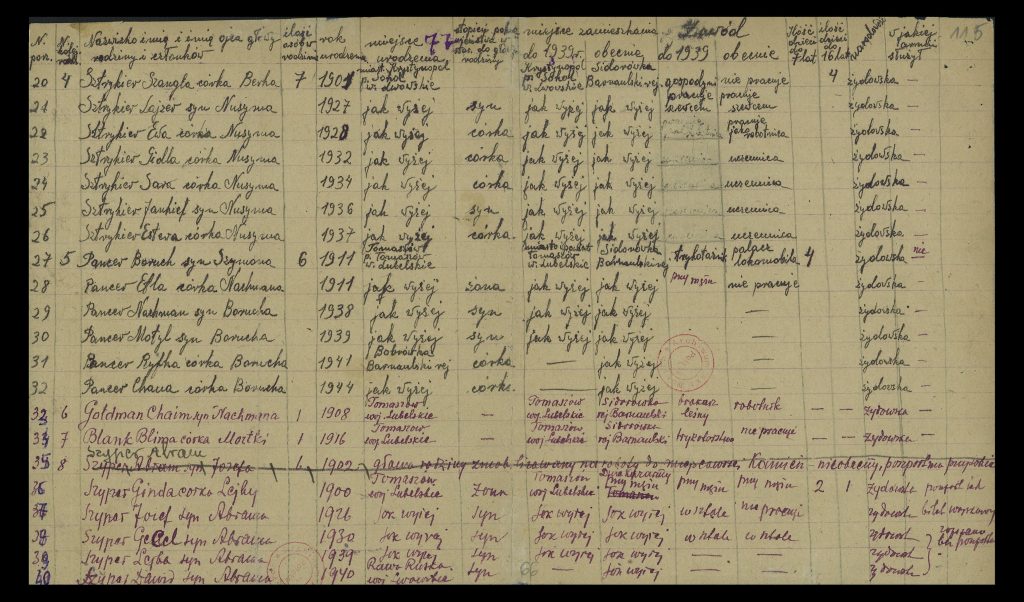 N. por. N. kolej. Nazwisko imię i imię ojca głowy rodziny i członków ilość osób w rodzinie rok urodzenia miejsce urodzenia 77 stopień do gło rodziny miejsce zamieszkania do 1939r. obecnie Zawód do 1939 obecnie Ilość dzieci do 7 lat ilość dzieci do 16 lat narodowość w jakiej służył 115
20 4 Sztrykier Szangla córka Berka 7 1901 miast. Krystynopol p. Sokol w. Lwowskie Krystynopol p. Sokol w. Lwowskie Sidorówka Barnaulski rej. gospodyni nie pracuje 4 żydowska —
21 Sztrykier Lajzer syn Nusyma 1927 jak wyżej syn jak wyżej jak wyżej pracuje szewcem pracuje szewcem żydowska —
22 Sztrykier Ewa córka Nusyma 1928 jak wyżej córka jak wyżej jak wyżej pracuje jako robotnica żydowska —
23 Sztrykier Gidla córka Nusyma 1932 jak wyżej córka jak wyżej jak wyżej uczennica żydowska —
24 Sztrykier Sara córka Nusyma 1934 jak wyżej córka jak wyżej jak wyżej uczennica żydowska —
25 Sztrykier Jankief syn Nusyma 1936 jak wyżej syn jak wyżej jak wyżej uczennica żydowska —
26 Sztrykier Estera córka Nusyma 1937 jak wyżej córka. jak wyżej jak wyżej uczennica żydowska —
27 5 Pancer Boruch syn Szymona 6 1911 Tomaszów p. Tomaszów w. Lubelskie miasto powiat Tomaszów w. Lubelskie Sidorówka Barnaulski rej trykotarz palacz lokomobila 4 żydowska nie
28 Pancer Efla córka Nachmana 1911 jak wyżej żona jak wyżej jak wyżej przy mężu nie pracuje żydowska —
29 Pancer Nachman syn Borucha 1938 jak wyżej syn jak wyżej jak wyżej — żydowska —
30 Pancer Motyl syn Borucha 1939 jak wyżej syn jak wyżej jak wyżej — żydowska —
31 Pancer Ryfka córka Borucha 1941 Bobrówka Barnaulski rej córka — jak wyżej — żydowska —
32 Pancer Chana córka Borucha 1944 jak wyżej córka. — jak wyżej — żydowska —
33 6 Goldman Chaim syn Nachmana 1 1908 Tomaszów woj. Lubelskie — Tomaszów woj. Lubelskie Sidorówka rej Barnaulski brakarz leśny robotnik żydowska —
34 7 Blank Blima córka Mortki 1 1916 Tomaszów woj. Lubelskie — Tomaszów woj. Lubelskie Sidorówka rej Barnaulski trykotarstwo nie pracuje — — żydowska —
Szyper Abram
35 8 Szyper Abram syn Josefa 6 1902 głowa rodziny zmobilizowany na roboty do Kamień - nieobecny,
36 Szyper Ginda corka Lejby 1900 Tomaszów woj. Lubelskie żona Tomaszów woj. Lubelskie przy mężu Tomaszów przy mężu przy mężu 2 1 żydowska
37 Szyper Josef syn Abrama 1926 jak wyżej syn jak wyżej jak wyżej w szkole nie pracuje żydowska
38 Szyper Gecel syn Abrama 1930 jak wyżej syn jak wyżej jak wyżej w szkole w szkole żydowsk
39 Szyper Lejba syn Abrama 1934 jak wyżej syn jak wyżej jak wyżej — — żydowsk
40 Szyper Dawid syn Abrama 1940 Rawa Ruska woj. Lwowskie syn — jak wyżej — — żydowsk
66